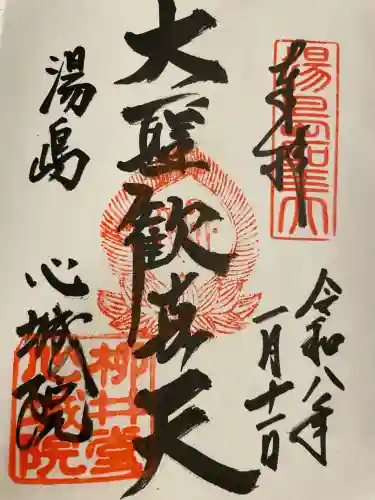 奉拝
令和八年
一月十一日
大聖歓喜天
湯島
心城院
柳井堂
心城院